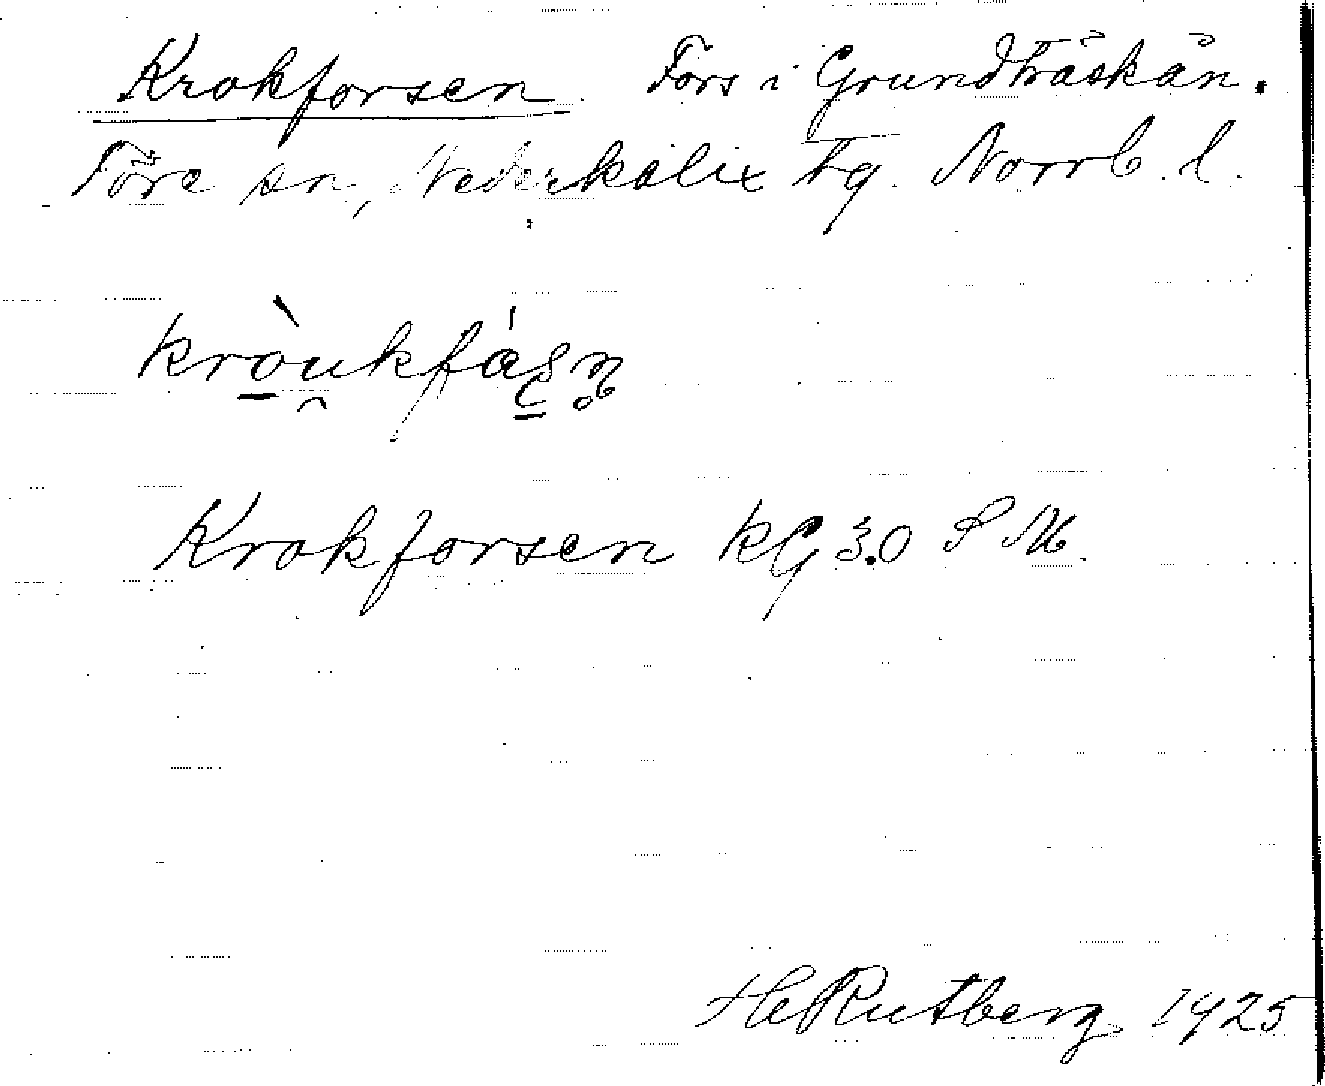 Krokforsen. Fors i Grundträskån.
Töre sn, Nederkalix tg. Norrb. l.
kròu̯kfáʂn̥
Krokforsen KG 30 SM.
HeRutberg 1925